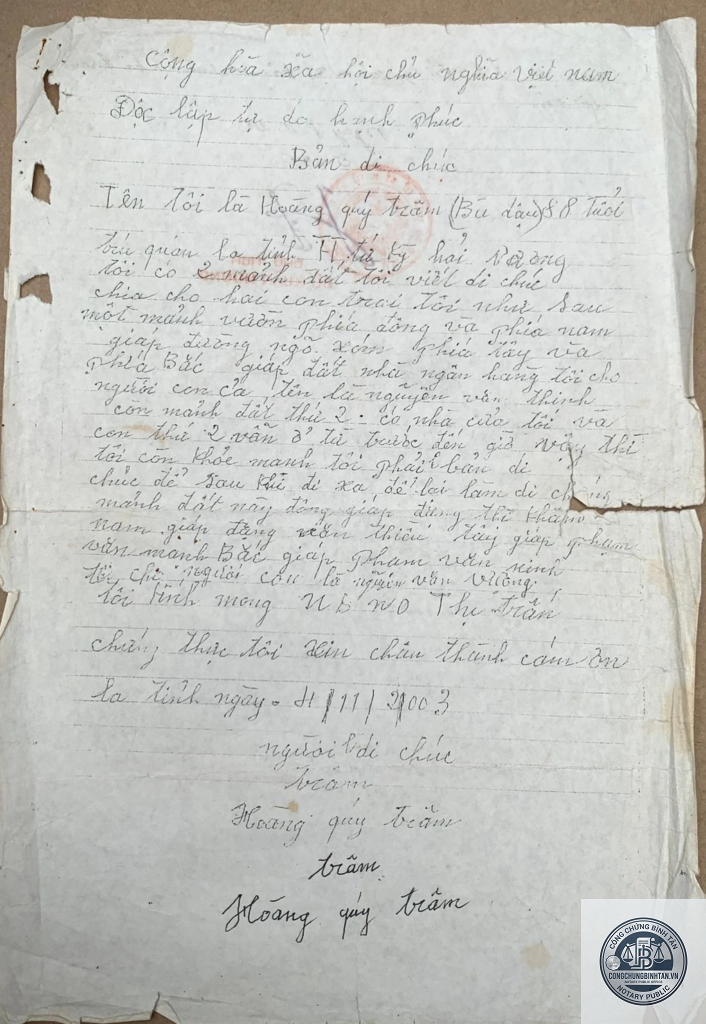 Cộng hòa xã hội chủ nghĩa việt nam
Độc lập tự do hạnh phúc
Bản di chúc
Tên tôi là Hoàng quý trâm (Bù đậu) 88 tuổi
trú quán la tỉnh TT tứ kỳ hải dương
tôi có 2 mảnh đất tôi viết di chúc
chia cho hai con trai tôi như sau
một mảnh vườn phía đông và phía nam
giáp đương ngõ xóm phía tây và
phía Bắc giáp đất nhà ngân hàng tôi cho
người con cả tên là nguyễn văn thinh
con mảnh đất thứ 2. có nhà cửa tôi và
con thứ 2 vẫn ở từ trước đến giờ vậy thi
tôi còn khỏe mạnh tôi phải bản di
chúc để sau khi đi xa để lại làm di
mảnh đất này đông giáp đặng thi
nam giáp đặng văn thiêu tây giáp phạm
văn mạnh Bắc giáp phạm văn ninh
tôi cho người con là nguyễn văn vương
tôi kính mong U b n D Thị trấn
chứng thực tôi xin chân thành cảm ơn
la tỉnh ngày. 4/11/2003
người di chúc
trâm
Hoàng quý trâm
trâm
Hoàng quý trâm
CÔNG CHỨNG BÌNH TÂN
CONGCHUNGBINHTAN.VN
NOTARY PUBLIC OFFICE
NOTARY PUBLIC